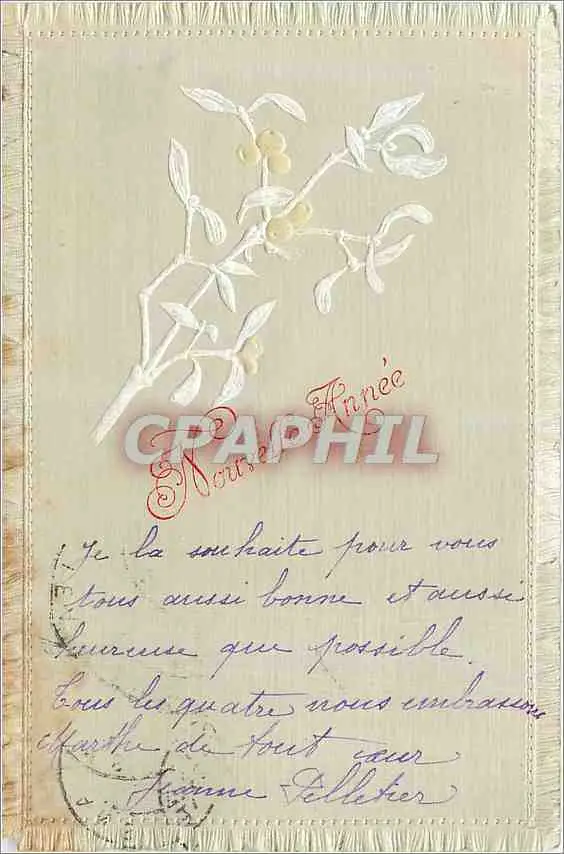 Nouvelle Année
CPAPHIL
Je la souhaite pour vous
tous aussi bonne et aussi
heureuse que possible.
Tous les quatre nous embrassons
Marthe de tout cœur
Jeanne Pelletier